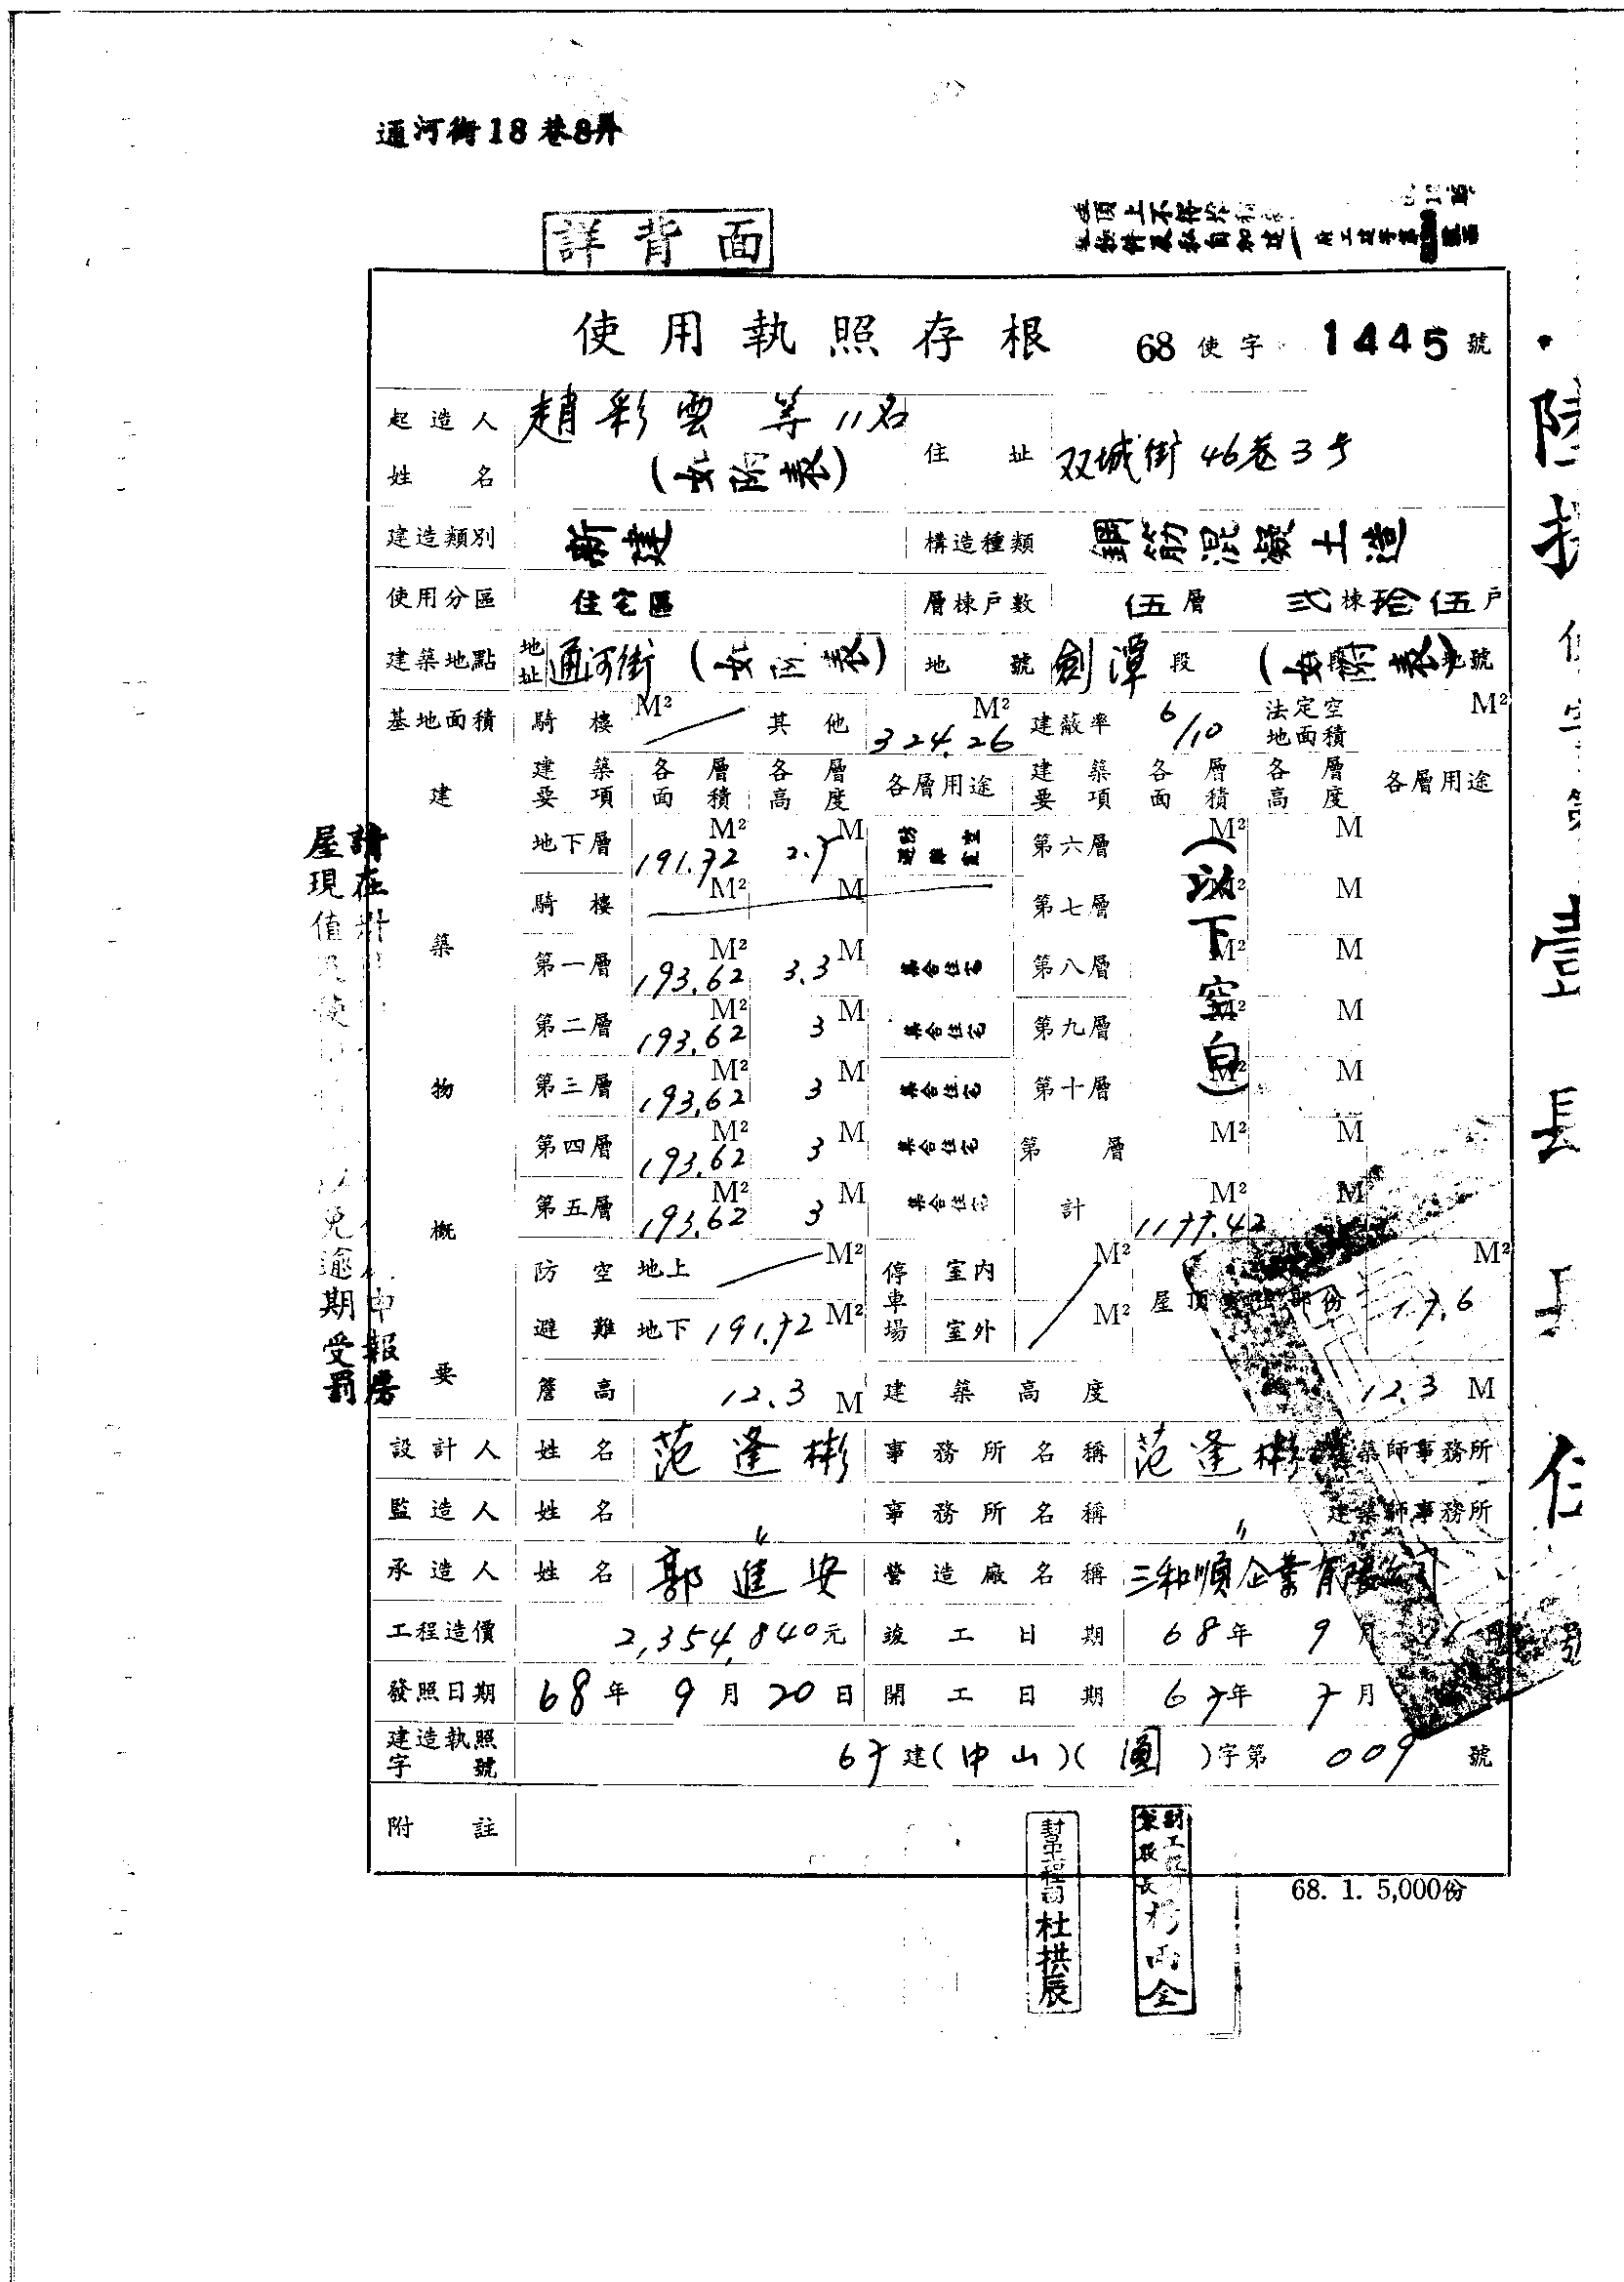 通河街18巷8弄
詳背面
使用執照存根 68使字 1445號
起造人姓名 趙彩雲 等11名 (如附表) 住址 双城街46巷3号
建造類別 新建 構造種類 鋼筋混凝土造
使用分區 住宅區 層棟戶數 伍層 弍棟拾伍戶
建築地點 地址 通河街(如附表) 地號 劍潭段 (如附表)地號
基地面積 騎樓 M² 其他 324.26 M² 建蔽率 6/10 法定空地面積 M²
建築物概要
建築要項 各層面積 各層高度 各層用途 建築要項 各層面積 各層高度 各層用途
地下層 191.72 M² 2.7 M 防空避難室 第六層 M² M
騎樓 M² M 第七層 M² M
第一層 193.62 M² 3.3 M 集合住宅 第八層 M² M
第二層 193.62 M² 3 M 集合住宅 第九層 M² M
第三層 193.62 M² 3 M 集合住宅 第十層 M² M
第四層 193.62 M² 3 M 集合住宅 第 層 M² M
第五層 193.62 M² 3 M 集合住宅 計 1177.42 M² M
(以下空白)
防空避難 地上 M² 停車場 室內 M² 屋頂 部份 17.6 M²
地下 191.72 M² 室外 M²
簷高 12.3 M 建築高度 12.3 M
設計人 姓名 范逢彬 事務所名稱 范逢彬建築師事務所
監造人 姓名 〃 事務所名稱 〃 建築師事務所
承造人 姓名 郭進安 營造廠名稱 三和順企業有限公司
工程造價 2,354,840元 竣工日期 68年 9月
發照日期 68年 9月 20日 開工日期 67年 7月
建造執照字號 67建(中山)(圓)字第 009 號
附註
68. 1. 5,000份
杜拱辰
請在
屋現值
免逾期受罰
申報房